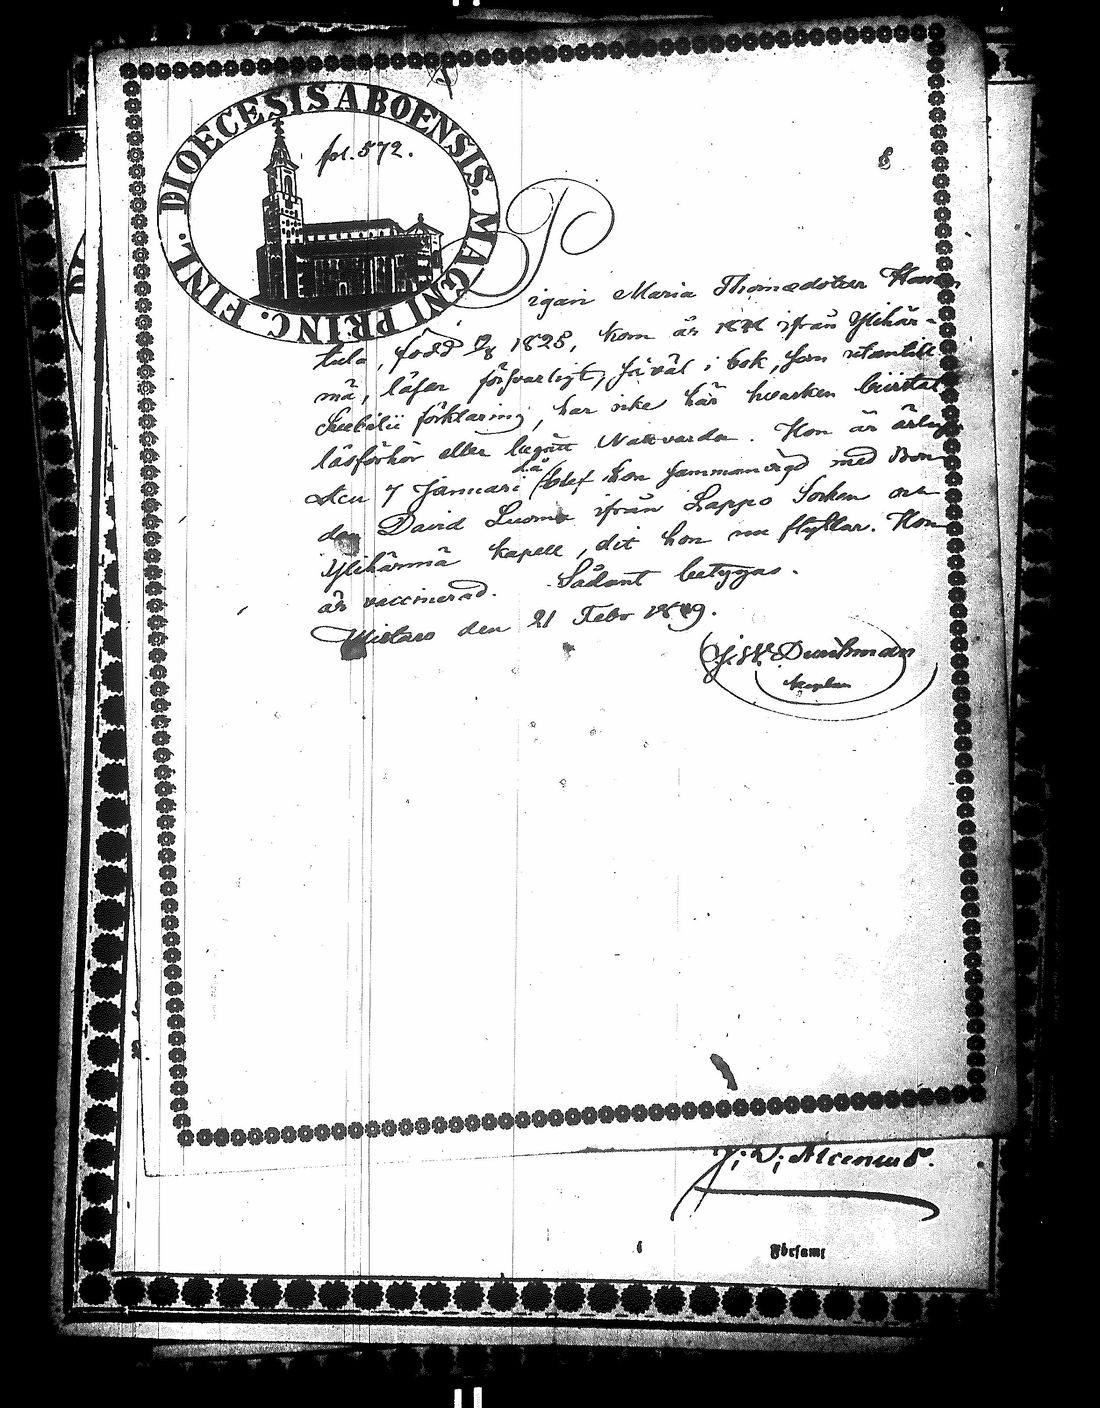 DIOECESIS ABOENSIS. MAGNI PRINC. FINL.
fol. 572.
8
Pigan Maria Thomædotter
tala, född 12/8 1825, kom år ifrån Ylihär-
mä, läser försvarligt, så väl i bok, som utantill
Svebilii förklaring, har icke här hvarken bivistat
läsförhör eller begått Nattvarden. Hon är ärlig
den 7 Januari då blef hon sammanvigd med Bon-
den David Luoma ifrån Lappo Socken och
Ylihärmä kapell, dit hon nu flyttar. Hon
är vaccinerad. Sådant betygas.
den 21 Febr 1849.
Kaplan
Församl